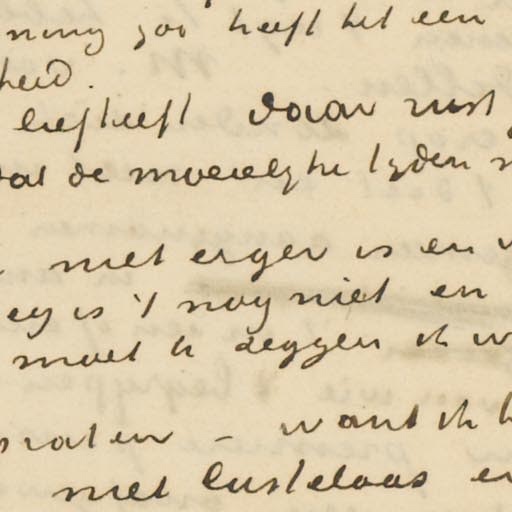 ning zoo heeft het een
heid.
liefheeft daar rust
dat de moeielyke tyden
niet erger is en
eg is 't nog niet en
moet U zeggen ik w
praten – want ik h
niet lusteloos en